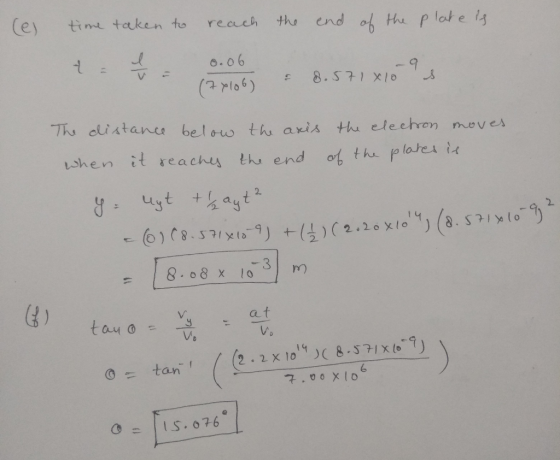 (e) time taken to reach the end of the plate is
t = l/v = 0.06/(7×10⁶) = 8.571 ×10⁻⁹ s
The distance below the axis the electron moves
when it reaches the end of the plates is
y = uyt + ½ ayt²
= (0)(8.571×10⁻⁹) + (½)(2.20×10¹⁴)(8.571×10⁻⁹)²
= 8.08 × 10⁻³ m
(f) tan θ = vy/v₀ = at/v₀
θ = tan⁻¹ ( (2.2×10¹⁴)(8.571×10⁻⁹) / 7.00×10⁶ )
θ = 15.076°